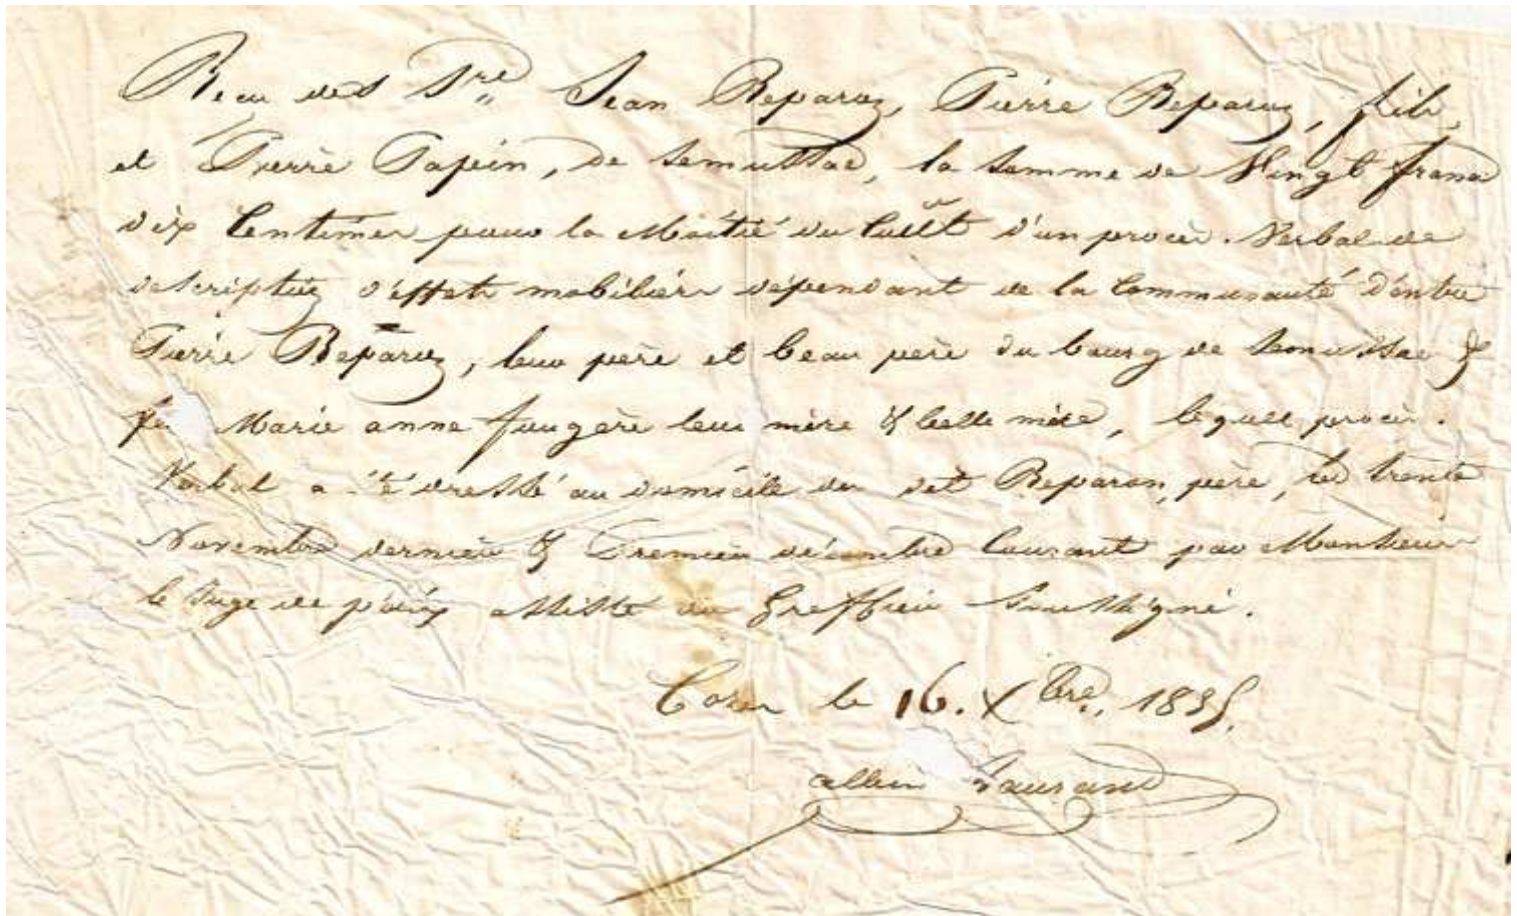 Recu des Srs Jean Beparon, Pierre Beparon, fils,
et Pierre Papin, de Semussac, la somme de Vingt francs
dix Centimes pour la Moitié du Coût d'un procès-Verbal de
description d'effets mobiliers dépendant de la Communauté d'entre
Pierre Beparon, leur père et beau père du bourg de Semussac &
feu Marie anne fougère leur mère & belle mère, lequel procès-
Verbal a été dressé au domicile du dit Beparon, père, les trente
Novembre dernier & Premier décembre Courant par Monsieur
le Juge de paix assisté du Greffier Soussigné.
Cozes le 16. Xbre. 1835.